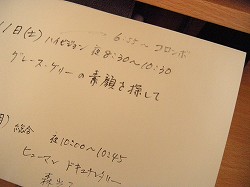 6:05～ コロンボ
11日(土) ハイビジョン 夜8:30～10:30
グレース・ケリーの素顔を探して
月) 総合 夜10:00～10:45
ヒューマン ドキュメンタリー
森光子